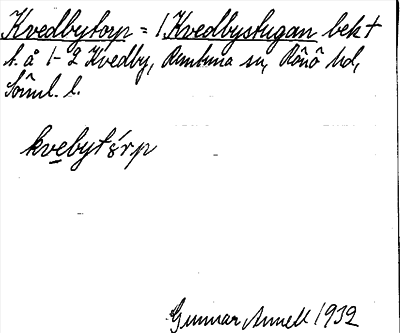 Kvedbytorp = 1 Kvedbystugan bekt
t. å 1-2 Kvedby, Runtuna sn, Rönö hd,
Söml. l.
kvebytòrp
Gunnar Annell 1932